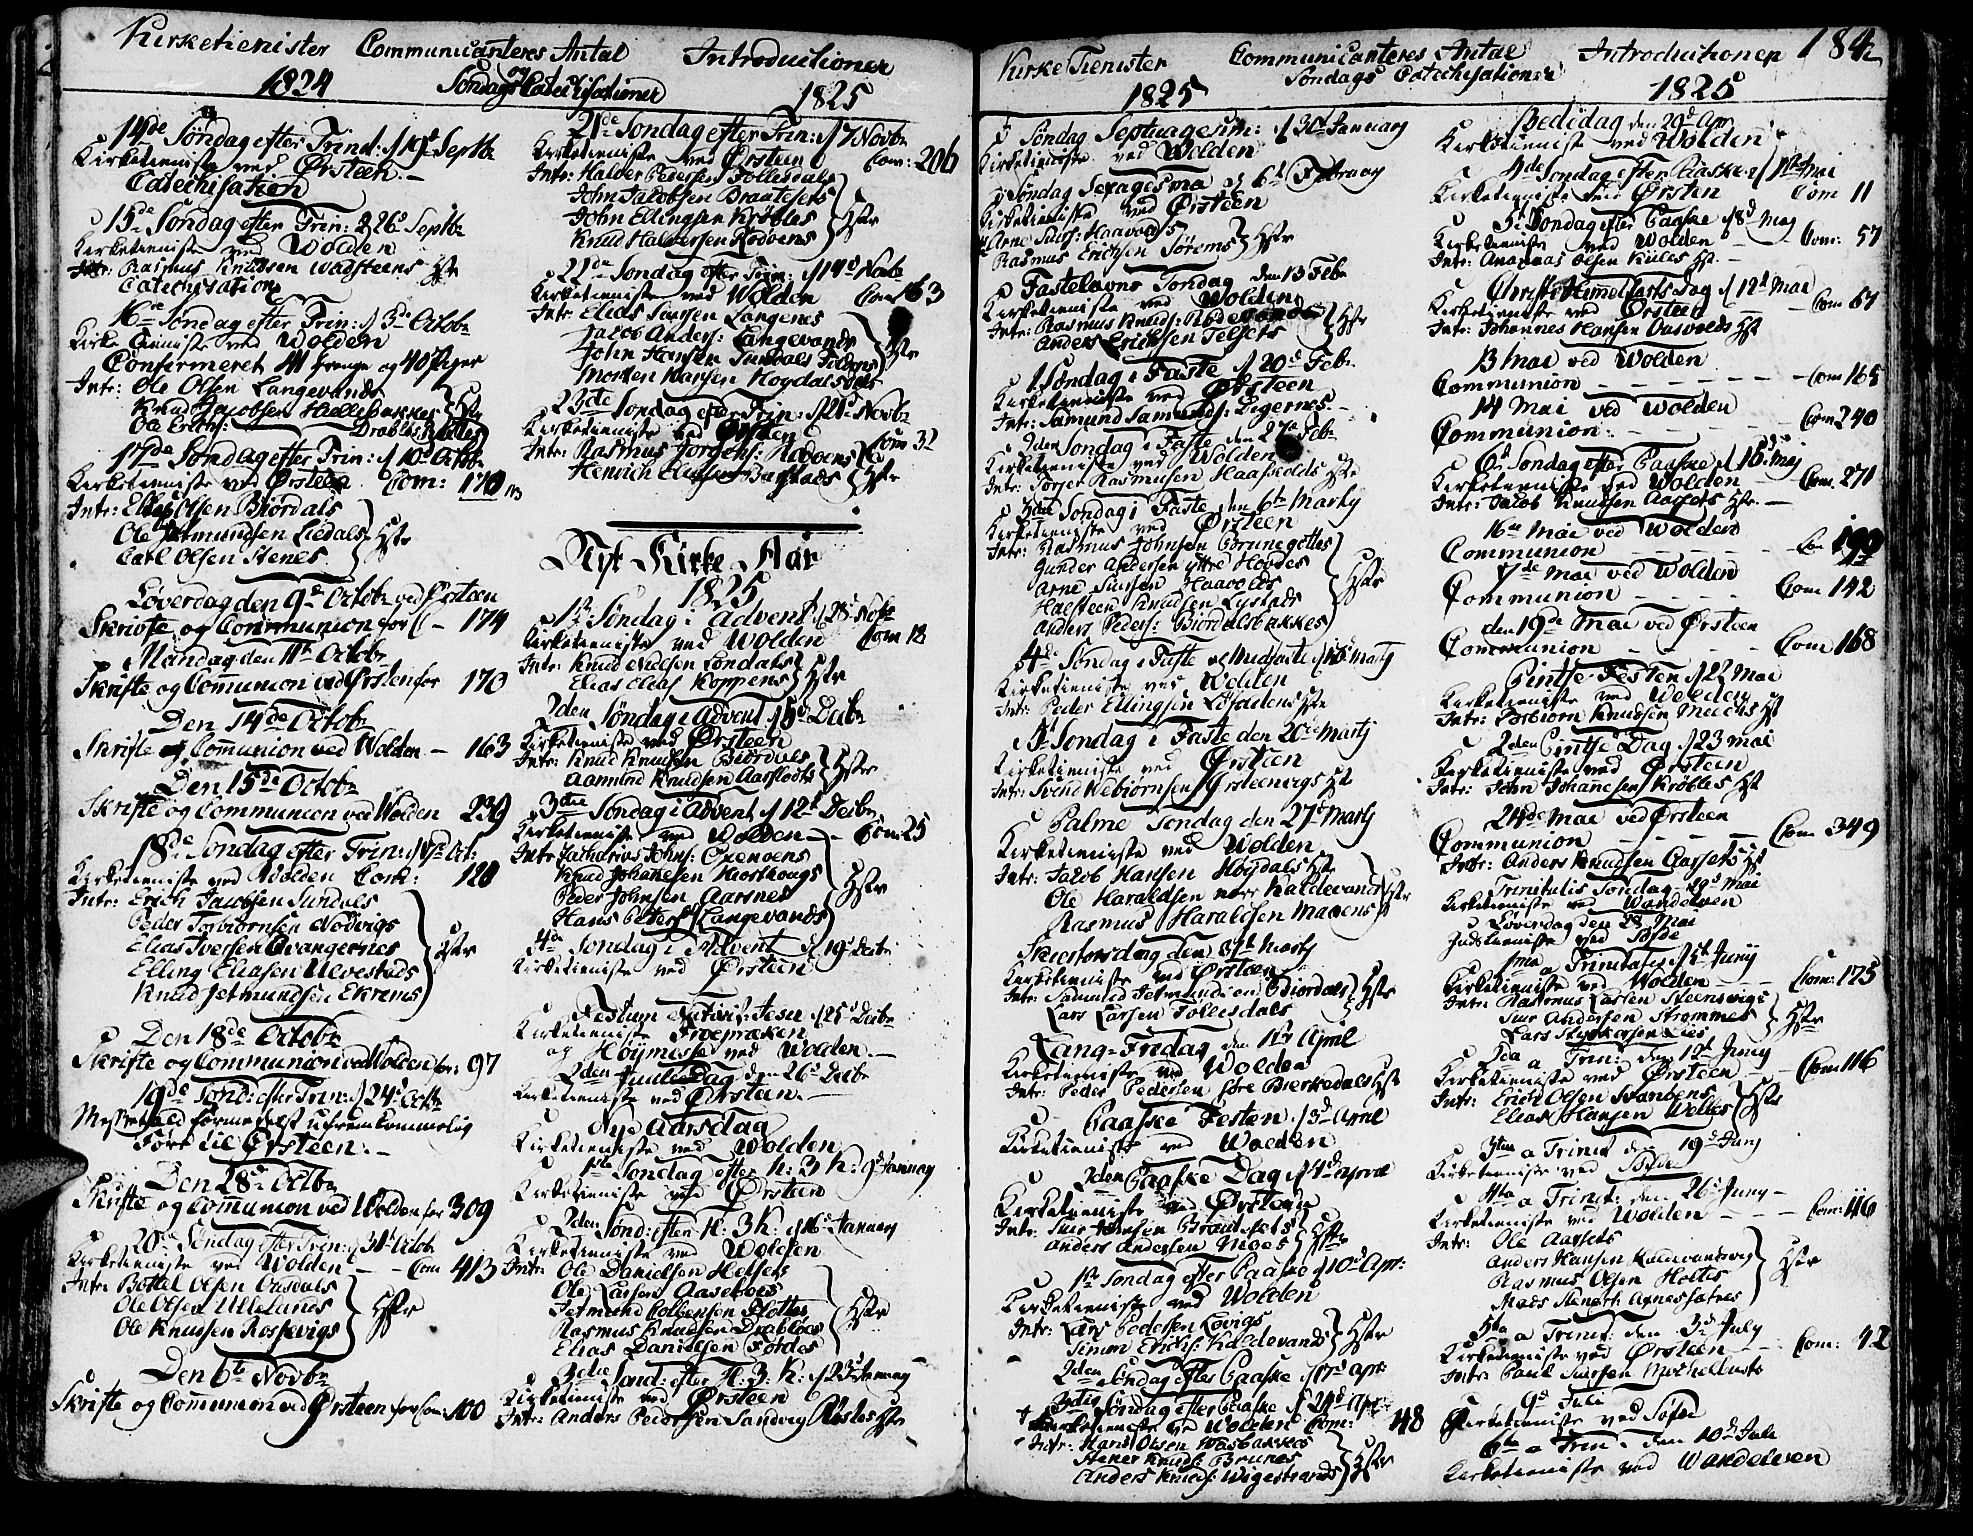 Kirketienister Communicanteres Antal Introductioner
og
1824 Søndags Catechisationer 1825
14de Søndag efter Trinit: d 19d Septbr
Kirketieniste ved Ørsteen.
Catechisation
15de Søndag efter Trin: d 26d Septbr
Kirketieniste ved Wolden
Intr: Rasmus Knudsen Wadsteens Hstr
Catechisation
16de Søndag efter Trin: d 3de Octobr
Kirketieniste ved Wolden
Confirmeret 41 Drenge og 40 Piger
Intr: Ole Olsen Langevands
Knud Jacobsen Hiellebakkes Hstr
Ole Erichs:
17de Søndag efter Trin: d 10d Octobr
Kirketieniste ved Ørsteen Com: 170
Intr: Olsen Biørdals
Ole Jetmundsen Liedals Hstr
Carl Olsen Stenes
Løverdag den 9de Octobr ved Ørsteen
Skrifte og Communion for 174
Mandag den 11te Octobr
Skrifte og Communion ved Ørsten for 170
Den 14de Octobr
Skrifte og Communion ved Wolden 163
Den 15de Octobr
Skrifte og Communion ved Wolden 239
18de Søndag efter Trin: d 17d Oct:
Kirketieniste ved Wolden Com: 128
Intr: Erich Jacobsen Sundals
Peder Torbiørnsen Nodvigs
Elias Iversen Qvangernes
Elling Eliasen Ulvestads Hstr
Knud Jetmundsen Ekrems
Den 18de Octobr
Skrifte og Communion ved Wolden for: 97
19de Sønd: efter Trin: d 24d Octbr
Messefald formedelst ufremkommelig
Føre til Ørsteen.
Den 28d Octbr
Skrifte og Communion ved Wolden for 309
20de Søndag efter Trin: d 31d Octob
Kirketieniste ved Wolden Com 413
Intr: Bottel Olsen Osdals
Ole Olsen Ullelands Hstr
Ole Knudsen Rossevigs
Den 6te Novbr
Skrifte og Communion ved Ørsteen for Com: 100
21de Søndag efter Trin: d 7 Novbr
Kirketieniste ved Ørsteen Com: 206
Intr: Halder Pedersen Follesdals
John Jacobsen Brautesets
John Ellingsen Krøbles Hstr
Knud Halvorsen Rødvens
22de Søndag efter Trin: d 14d Novbr
Kirketieniste ved Wolden Com 163
Intr Elias Larsen Langenes
Jacob Anders: Langevands
John Hansen Sundals Hstr
Morten Hansen Høydals
23de Søndag efter Trin: d 21d Novbr
Kirketieniste ved Ørsten Com 32
Intr: Rasmus Jørgens: Rødvens
Henrich Hstr
Nyt Kirke Aar
1825
1te Søndag i Advent d 28d Nobr
Kirketieniste ved Wolden Com 18
Intr: Knud Nielsen Løndals
Elias Elias Koppens Hstr
2den Søndag i Advent d 5d Decbr
Kirketieniste ved Ørsteen
Intr: Knud Knudsen Biørdals
Aamund Knudsen Aarsleds Hstr
3die Søndag i Advent d 12d Decbr
Kirketieniste ved Wolden Com 25
Intr Zacharias Johns:
Knud Johanesen
Peder Johnsen Aarsnes Hstr
Hans Peters: Langevands
4de Søndag i Advent d 19d Decbr
Kirketieniste ved Ørsteen
Festum Nativit: Jesu d 25d Decbr
Kirketieniste Froepræken
og Høymesse ved Wolden.
2den Juuledag den 26d Decbr
Kirketieniste ved Ørsteen.
Nyt Aarsdag
Kirketieniste ved Wolden
1ste Søndag efter H: 3 K: 9d January
Kirketieniste ved Ørsteen
2den Sønd: efter H: 3 K: d 16d January
Kirketieniste ved Wolden
Intr: Ole Danielsen Helsets
Ole Larsen Aasebøes
Jetmund Colbensen Flotter Hstr
Rasmus Knudsen Drabløes
Elias Danielsen Førdes
3die Sønd: efter H: 3 K: d 23d January
Kirketieniste ved Ørsteen
Intr: Anders Pedersen Sandvig Røstes Hstr
Kirke Tienister Communicanteres Antal Introductioner 184
1825 Søndags Catechisationer 1825
Søndag Septuagesim: d 30d January
Kirketieniste ved Wolden
Søndag Sexagesima d 6te February
Kirketieniste ved Ørsteen
Arne Siurs: Haavolds
Rasmus Erichsen Sørems Hstr
Fastelavns Søndag den 13 Febr
Kirketieniste ved Wolden
Intr: Rasmus Knuds:
Anders Erichsen Hstr
1 Søndag i Faste d 20d Febr.
Kirketieniste ved Ørsteen
Intr: Samund Samunds: Digernes.
2den Søndag i Faste den 27d Febr
Kirketieniste ved Wolden
Intr: Torger Rasmusen Hstr
3die Søndag i Faste den 6te Marty
Kirketieniste ved Ørsteen
Intr: Rasmus Johnsen Brunegottes
Gunder Andersen Yttre Hovdes
Arne Siursen Haavolds Hstr
Halsteen Knudsen Lystads
Anders Peders: Biørdalsbakkes
4de Søndag i Faste Midfaste d 13d Marty
Kirketieniste ved Wolden
Intr: Peder Ellingsen Hstr
5te Søndag i Faste den 20de Marty
Kirketieniste ved Ørsteen
Intr: Svend Webiørnsen Ørsteenvigs Hst
Palme Søndag den 27d Marty
Kirketieniste ved Wolden
Intr: Jacob Hansen Høydals Hstr
Ole Haraldsen Kaldevands Hstr
Rasmus Haraldsen
Skiertorsdag den 31te Marty
Kirketieniste ved Ørsteen
Intr: Samund Jetmundsen Biørdals Hstr
Lars Larsen Follesdals
Lang-Fredag den 1te April
Kirketieniste ved Wolden
Intr: Peder Pedersen Bierkedals Hstr
Paaske Festen d 3d April
Kirketieniste ved Wolden
2den Paaske Dag d 4d April
Kirketieniste ved Ørsteen
Intr: Siur Brautesets
Anders Andersen Moes Hstr
1te Søndag efter Paaske d 10d Apr:
Kirketieniste ved Wolden
Intr: Lars Pedersen Løvigs
Simon Erichs: Kaldevands Hstr
2den Søndag efter Paaske d 17d Apr:
3die Søndag efter Paaske d 24d Apr
Kirketieniste ved Wolden Com: 48
Intr: Hans Olsen Wasbakkes
Stener Knuds: Brunes
Anders Knuds: Wigestrands Hstr
Bededag den 29d Apr
Kirketieniste ved Wolden
4de Søndag efter Paaske d 1ste Mai
Kirketieniste ved Ørsten Com 11
5te Søndag efter Paaske d 8d Maj
Kirketieniste ved Wolden Com: 57
Intr: Andreas Olsen Kiiles Hst.
Christi Himmelfarts Dag d 12d Mai
Kirketieniste ved Ørsteen Com 67
Intr: Johannes Hansen Hst
13 Mai ved Wolden
Communion Com 165
14 Mai ved Wolden
Communion Com 240
6d Søndag efter Paaske d 15d Maj
Kirketieniste ved Wolden Com. 271
Intr: Jacob Knudsen Aarsets Hstr.
16de Mai ved Wolden
Communion Com 199
17de Mai ved Wolden
Communion Com 142
den 19de Mai ved Ørsteen
Communion Com 168
Pintse Festen d 22 Mai
Kirketieniste ved Wolden
Intr: Torbiørn Knudsen Hst
2den Pintse Dag d 23 Mai
Kirketieniste ved Ørsteen
Intr: John Johanesen Krøbles Hst
24de Mai ved Ørsteen
Communion Com 349
Intr: Anders Knudsen Aarsets Hst
Trinitatis Søndag 29d Mai
Kirketieniste ved Wandelven
Løverdag den 28 Mai
ved Søfde
1ma a Trinitatis d 5te Juny
Kirketieniste ved Wolden Com: 175
Intr: Rasmus Larsen Steensvigs
Siur Andersen Strømmes Hstr
Lars Lies
2da a Trin: den 12d Juny
Kirketieniste ved Ørsteen Com 116
Intr: Erich Olsen
Elias Hansen Welles Hstr
3tia a Trinit den 19d Juny
Kirketieniste ved Søfde
4ta a Trinit: den 26d Juny
Kirketieniste ved Wolden Com: 116
Intr: Ole Aarsets
Anders Hansen Kaldevandsvig
Rasmus Olsen Holtes Hstr
Mads
5ta a Trinit: den 3d July
Kirketieniste ved Ørsteen Com: 42
Intr: Paul Siursen
9d Juli
Kirketieniste ved Søfde
6ta a Trin: den 10d Juli
Kirketieniste ved Wandelven